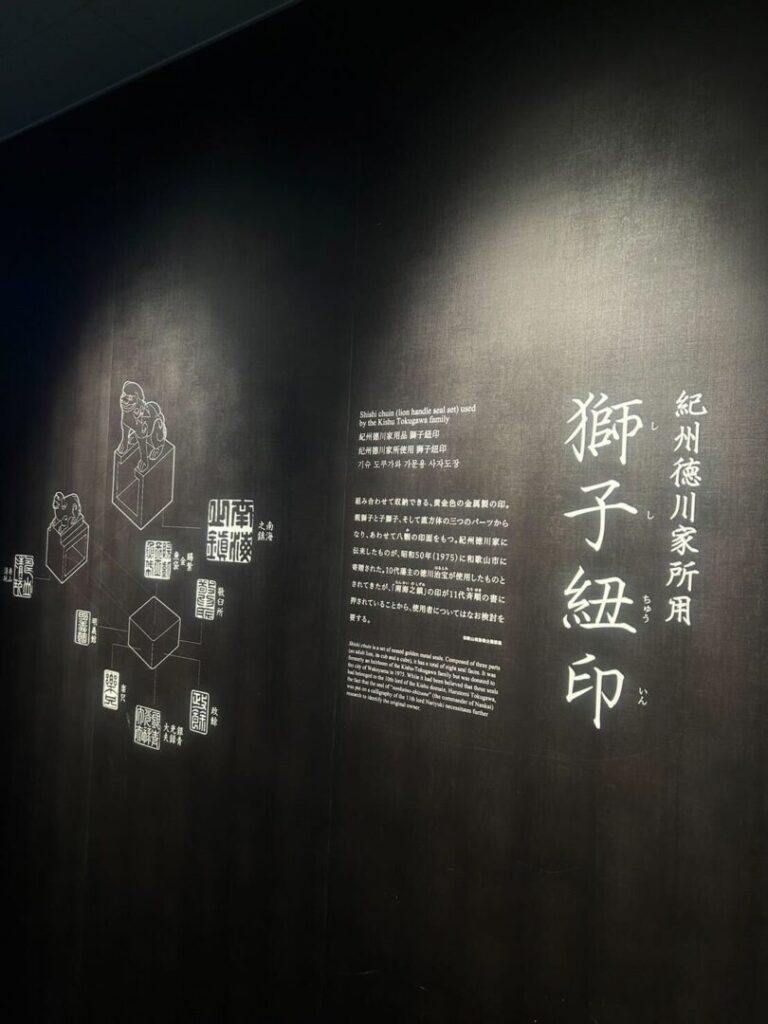 紀州徳川家所用
獅子紐印
し
し
ちゅう
いん
Shishi chuin (lion handle seal set) used
by the Kishu Tokugawa family
紀州德川家用品 獅子鈕印
紀州徳川家所使用 獅子鈕印
기슈 도쿠가와 가문용 사자도장
組み合わせて収納できる、黄金色の金属製の印。
親獅子と子獅子、そして直方体の三つのパーツから
なり、あわせて八個の印面をもつ。紀州徳川家に
伝来したものが、昭和50年(1975)に和歌山市に
寄贈された。10代藩主の徳川治宝が使用したものと
されてきたが、「南海之鎮」の印が11代斉順の書に
押されていることから、使用者についてはなお検討を
要する。
Shishi chuin is a set of nested golden metal seals. Composed of three parts
(an adult lion, its cub and a cube), it has a total of eight seal faces. It was
formerly an heirloom of the Kishu-Tokugawa family but was donated to
the city of Wakayama in 1975. While it had been believed that these seals
had belonged to the 10th lord of the Kishu domain, Harutomi Tokugawa,
the fact that the seal of "nankaino-shizume" (the commander of Nankai)
was put on a calligraphy of the 11th lord Nariyuki necessitates further
research to identify the original owner.
南海
之鎮
賜紫
金
魚袋
政餘
銀青
光禄
大夫
楽只
明義館